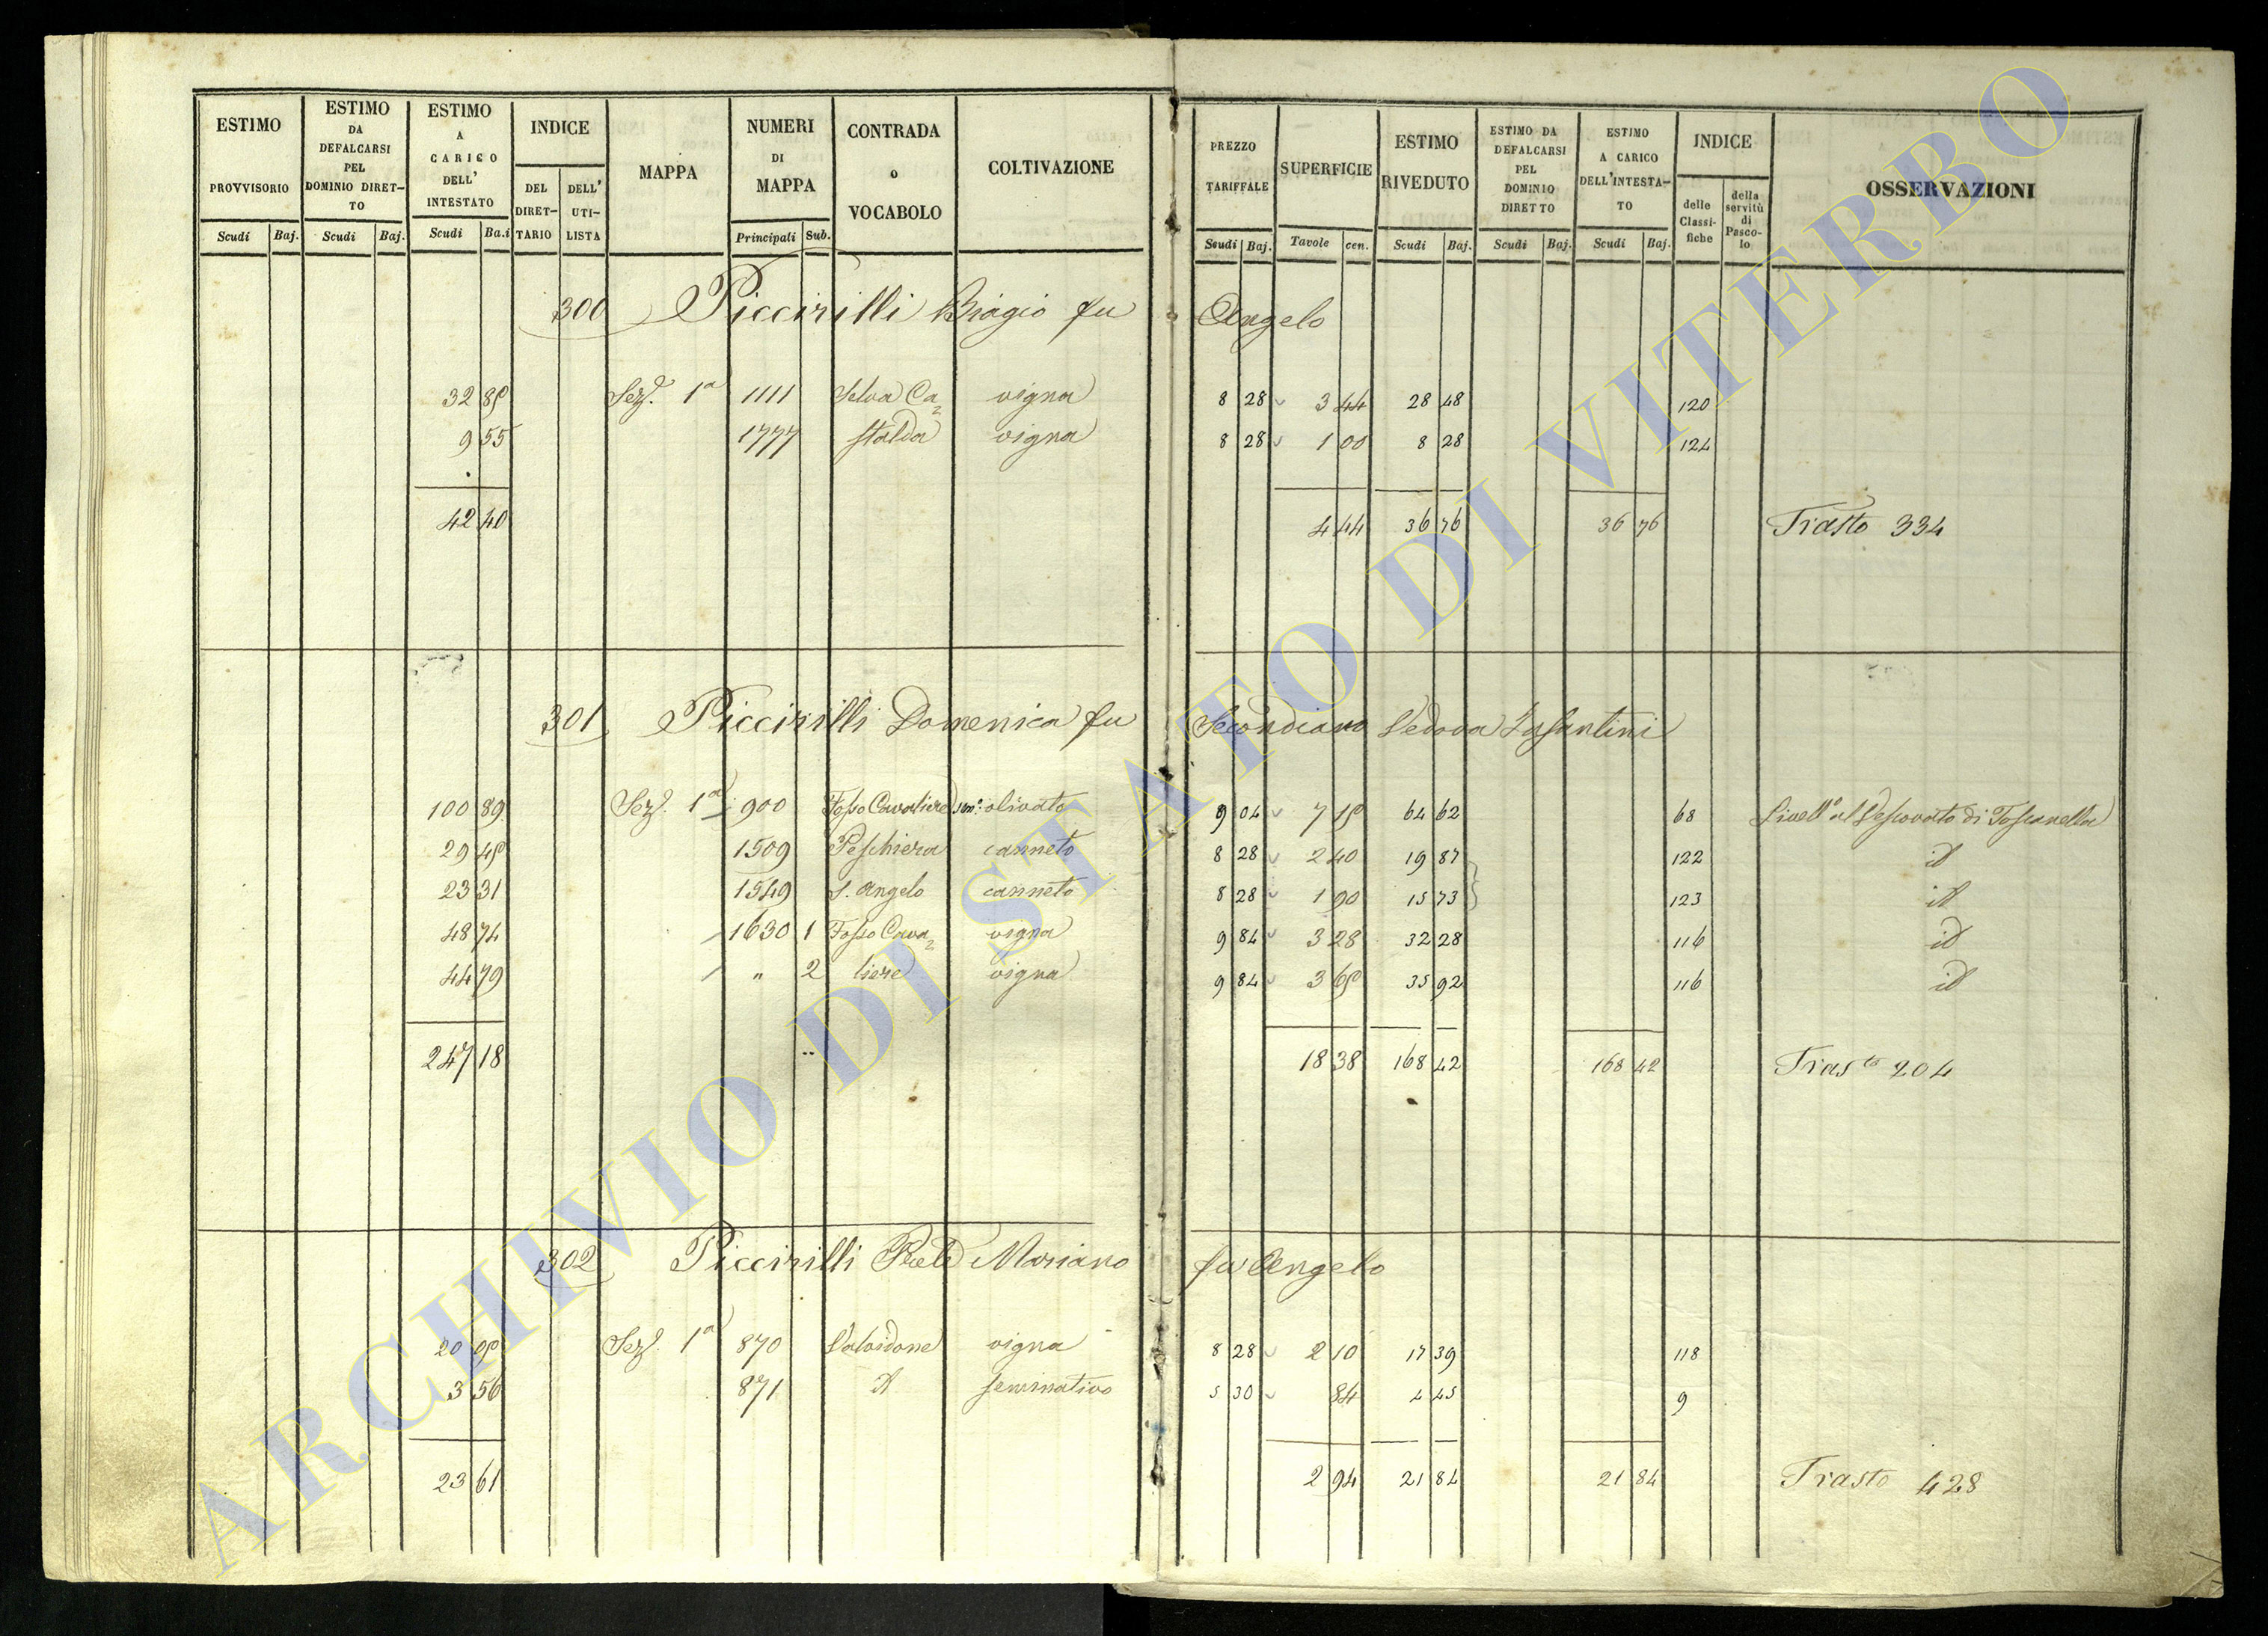 ESTIMO PROVVISORIO
Scudi Baj.
ESTIMO DA DEFALCARSI PEL DOMINIO DIRET-TO
Scudi Baj.
ESTIMO A CARICO DELL' INTESTATO
Scudi Ba.i
INDICE
DEL DIRET-TARIO
DELL' UTI-LISTA
MAPPA
NUMERI DI MAPPA
Principali Sub.
CONTRADA o VOCABOLO
COLTIVAZIONE
PREZZO TARIFFALE
Scudi Baj.
SUPERFICIE
Tavole cen.
ESTIMO RIVEDUTO
Scudi Baj.
ESTIMO DA DEFALCARSI PEL DOMINIO DIRETTO
Scudi Baj.
ESTIMO A CARICO DELL'INTESTA-TO
Scudi Baj.
INDICE
delle Classi-fiche
della servitù di Pasco-lo
OSSERVAZIONI
300 Piccirilli Biagio fu Angelo
32 85 Sez. 1a 1111 Selva Ca= vigna 8 28 3 44 28 48 120
9 55 1777 stalda vigna 8 28 1 00 8 28 124
42 40 4 44 36 76 36 76 Trasto 334
301 Piccirilli Domenica fu Secondiano Vedova
100 89 Sez. 1a 900 Fosso Cavaliere sem. olivato 9 04 7 15 64 62 68 Livello al Vescovato di Toscanella
29 45 1509 Peschiera canneto 8 28 2 40 19 87 122 id
23 31 1549 S. Angelo canneto 8 28 1 90 15 73 123 id
48 74 1630 1 Fosso Cava= vigna 9 84 3 28 32 28 116 id
44 79 " 2 liere vigna 9 84 3 65 35 92 116 id
247 18 18 38 168 42 168 42 Trasto 204
302 Piccirilli Mariano fu Angelo
20 05 Sez. 1a 870 Valvidone vigna 8 28 2 10 17 39 118
3 56 871 id seminativo 5 30 84 4 45 9
23 61 2 94 21 84 21 84 Trasto 428
ARCHIVIO DI STATO DI VITERBO